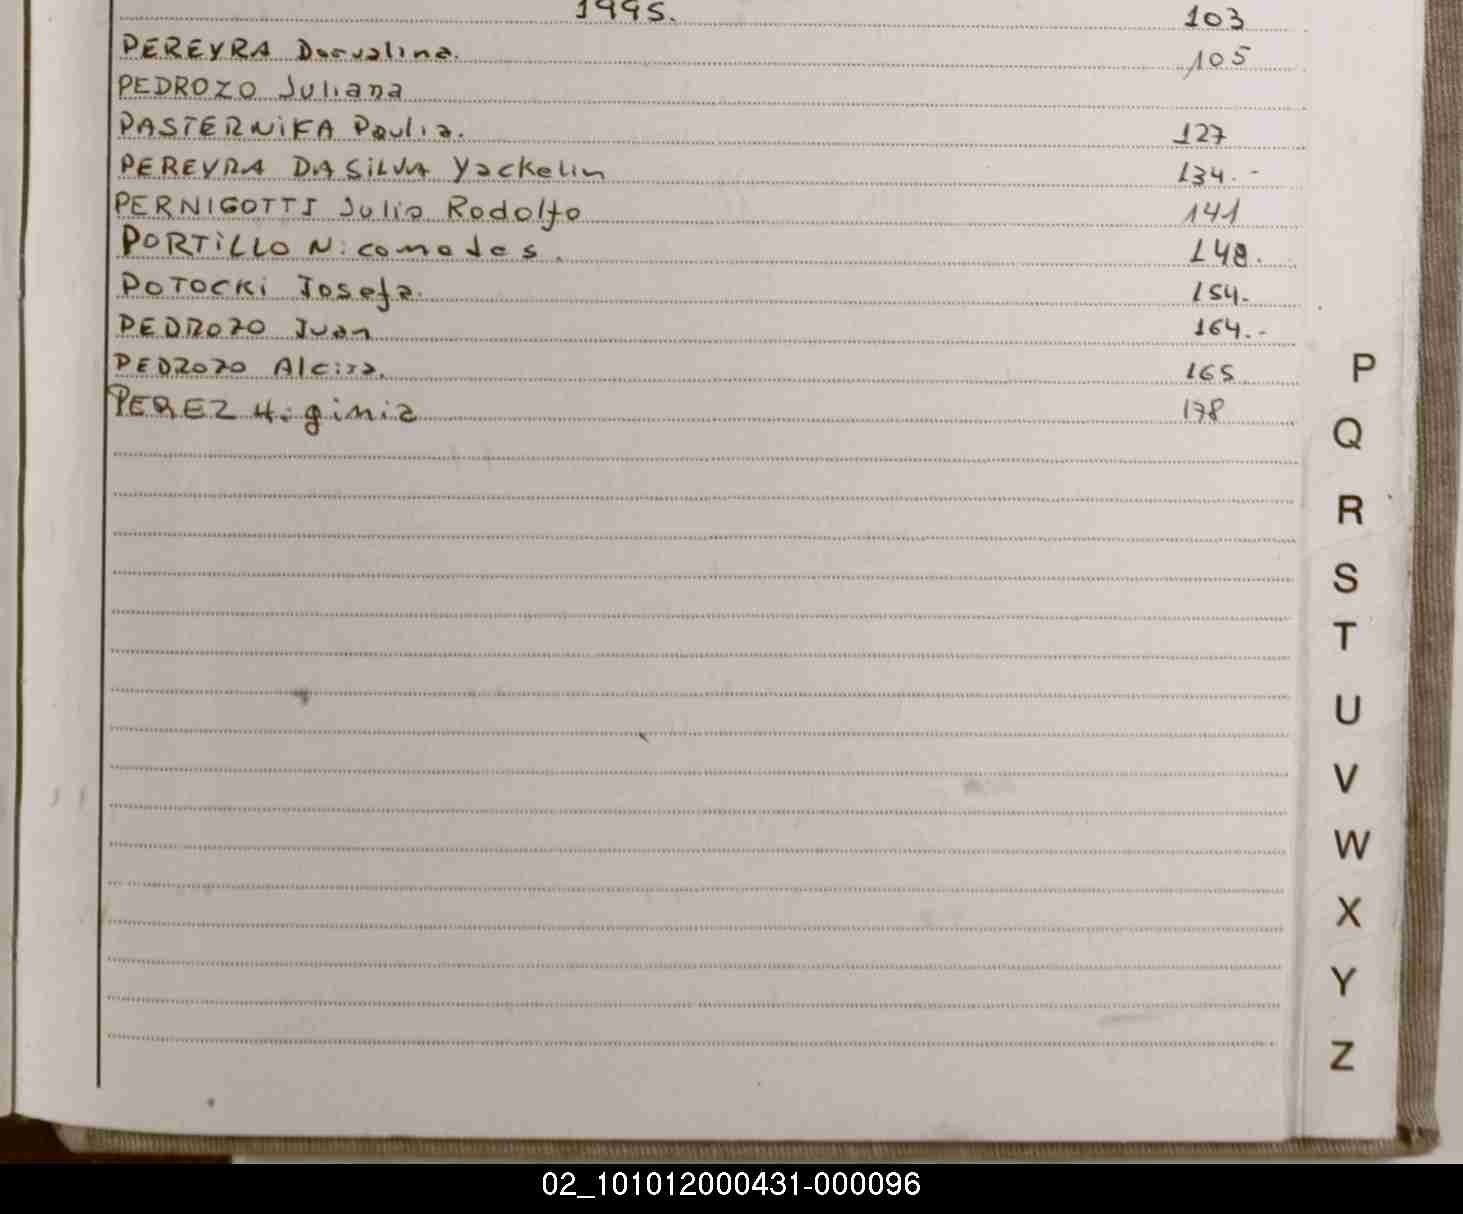 1995. 103
PEREYRA Dorvalina. 105
PEDROZO Juliana
PASTERNiKA Paulia. 127
PEREYRA DA SiLVA Yackelin 134.-
PERNIGOTTI Julio Rodolfo 141
PORTiLLO Nicomedes. 148.
POTOCKi Josefa. 154.
PEDROZO Juan 164.-
PEDROZO Alcira. 165
PEREZ Higinia 178
P
Q
R
S
T
U
V
W
X
Y
Z
02_101012000431-000096